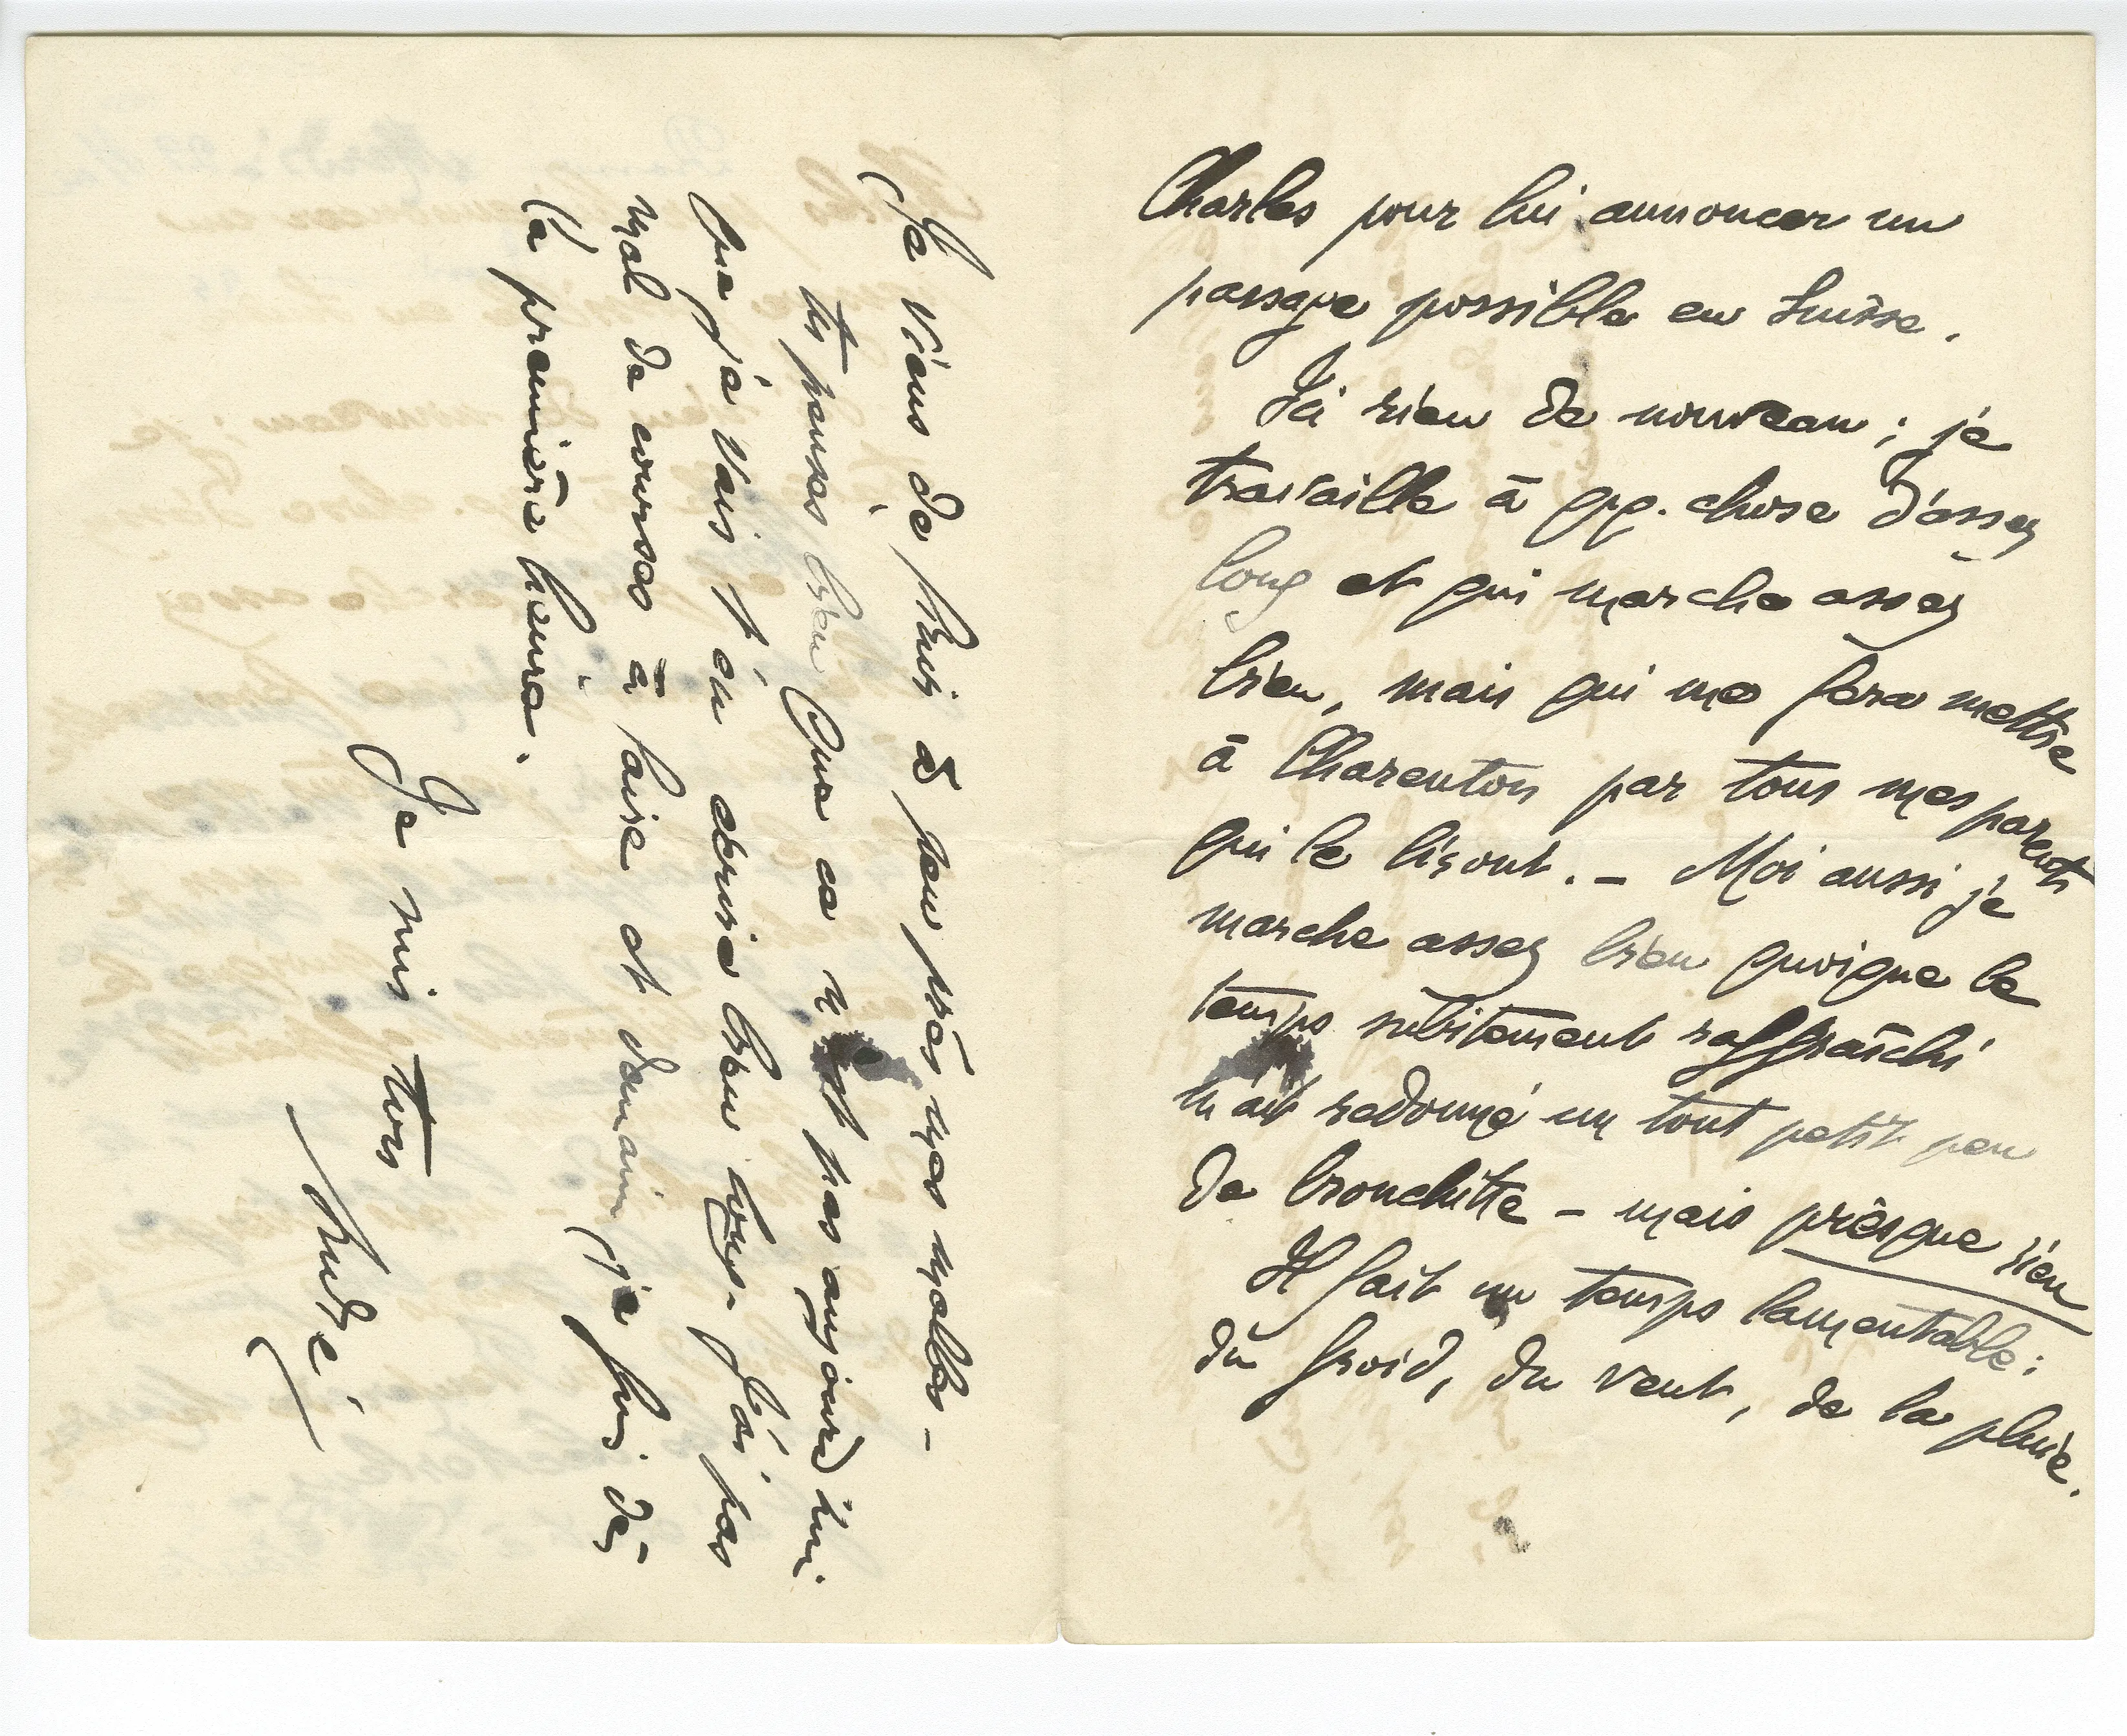 Charles pour lui annoncer un
passage possible en Suisse.
Ici rien de nouveau ; je
travaille à qq. chose d'assez
long et qui marche assez
bien, mais qui me fera mettre
à Charenton par tous mes parents
qui le liront. – Moi aussi je
marche assez bien quoique le
temps subitement raffraîchi
m'ait redonné un tout petit peu
de bronchitte – mais presque rien
Il fait un temps lamentable :
du froid, du vent, de la pluie.
Je viens de finir à peu près mes malles –
tu penses bien que ce n'est pas aujourd'hui
que je vais t'en écrire bien long. J'ai pas
mal de courses à faire et demain je pars dès
la première heure.
Je suis ton
André